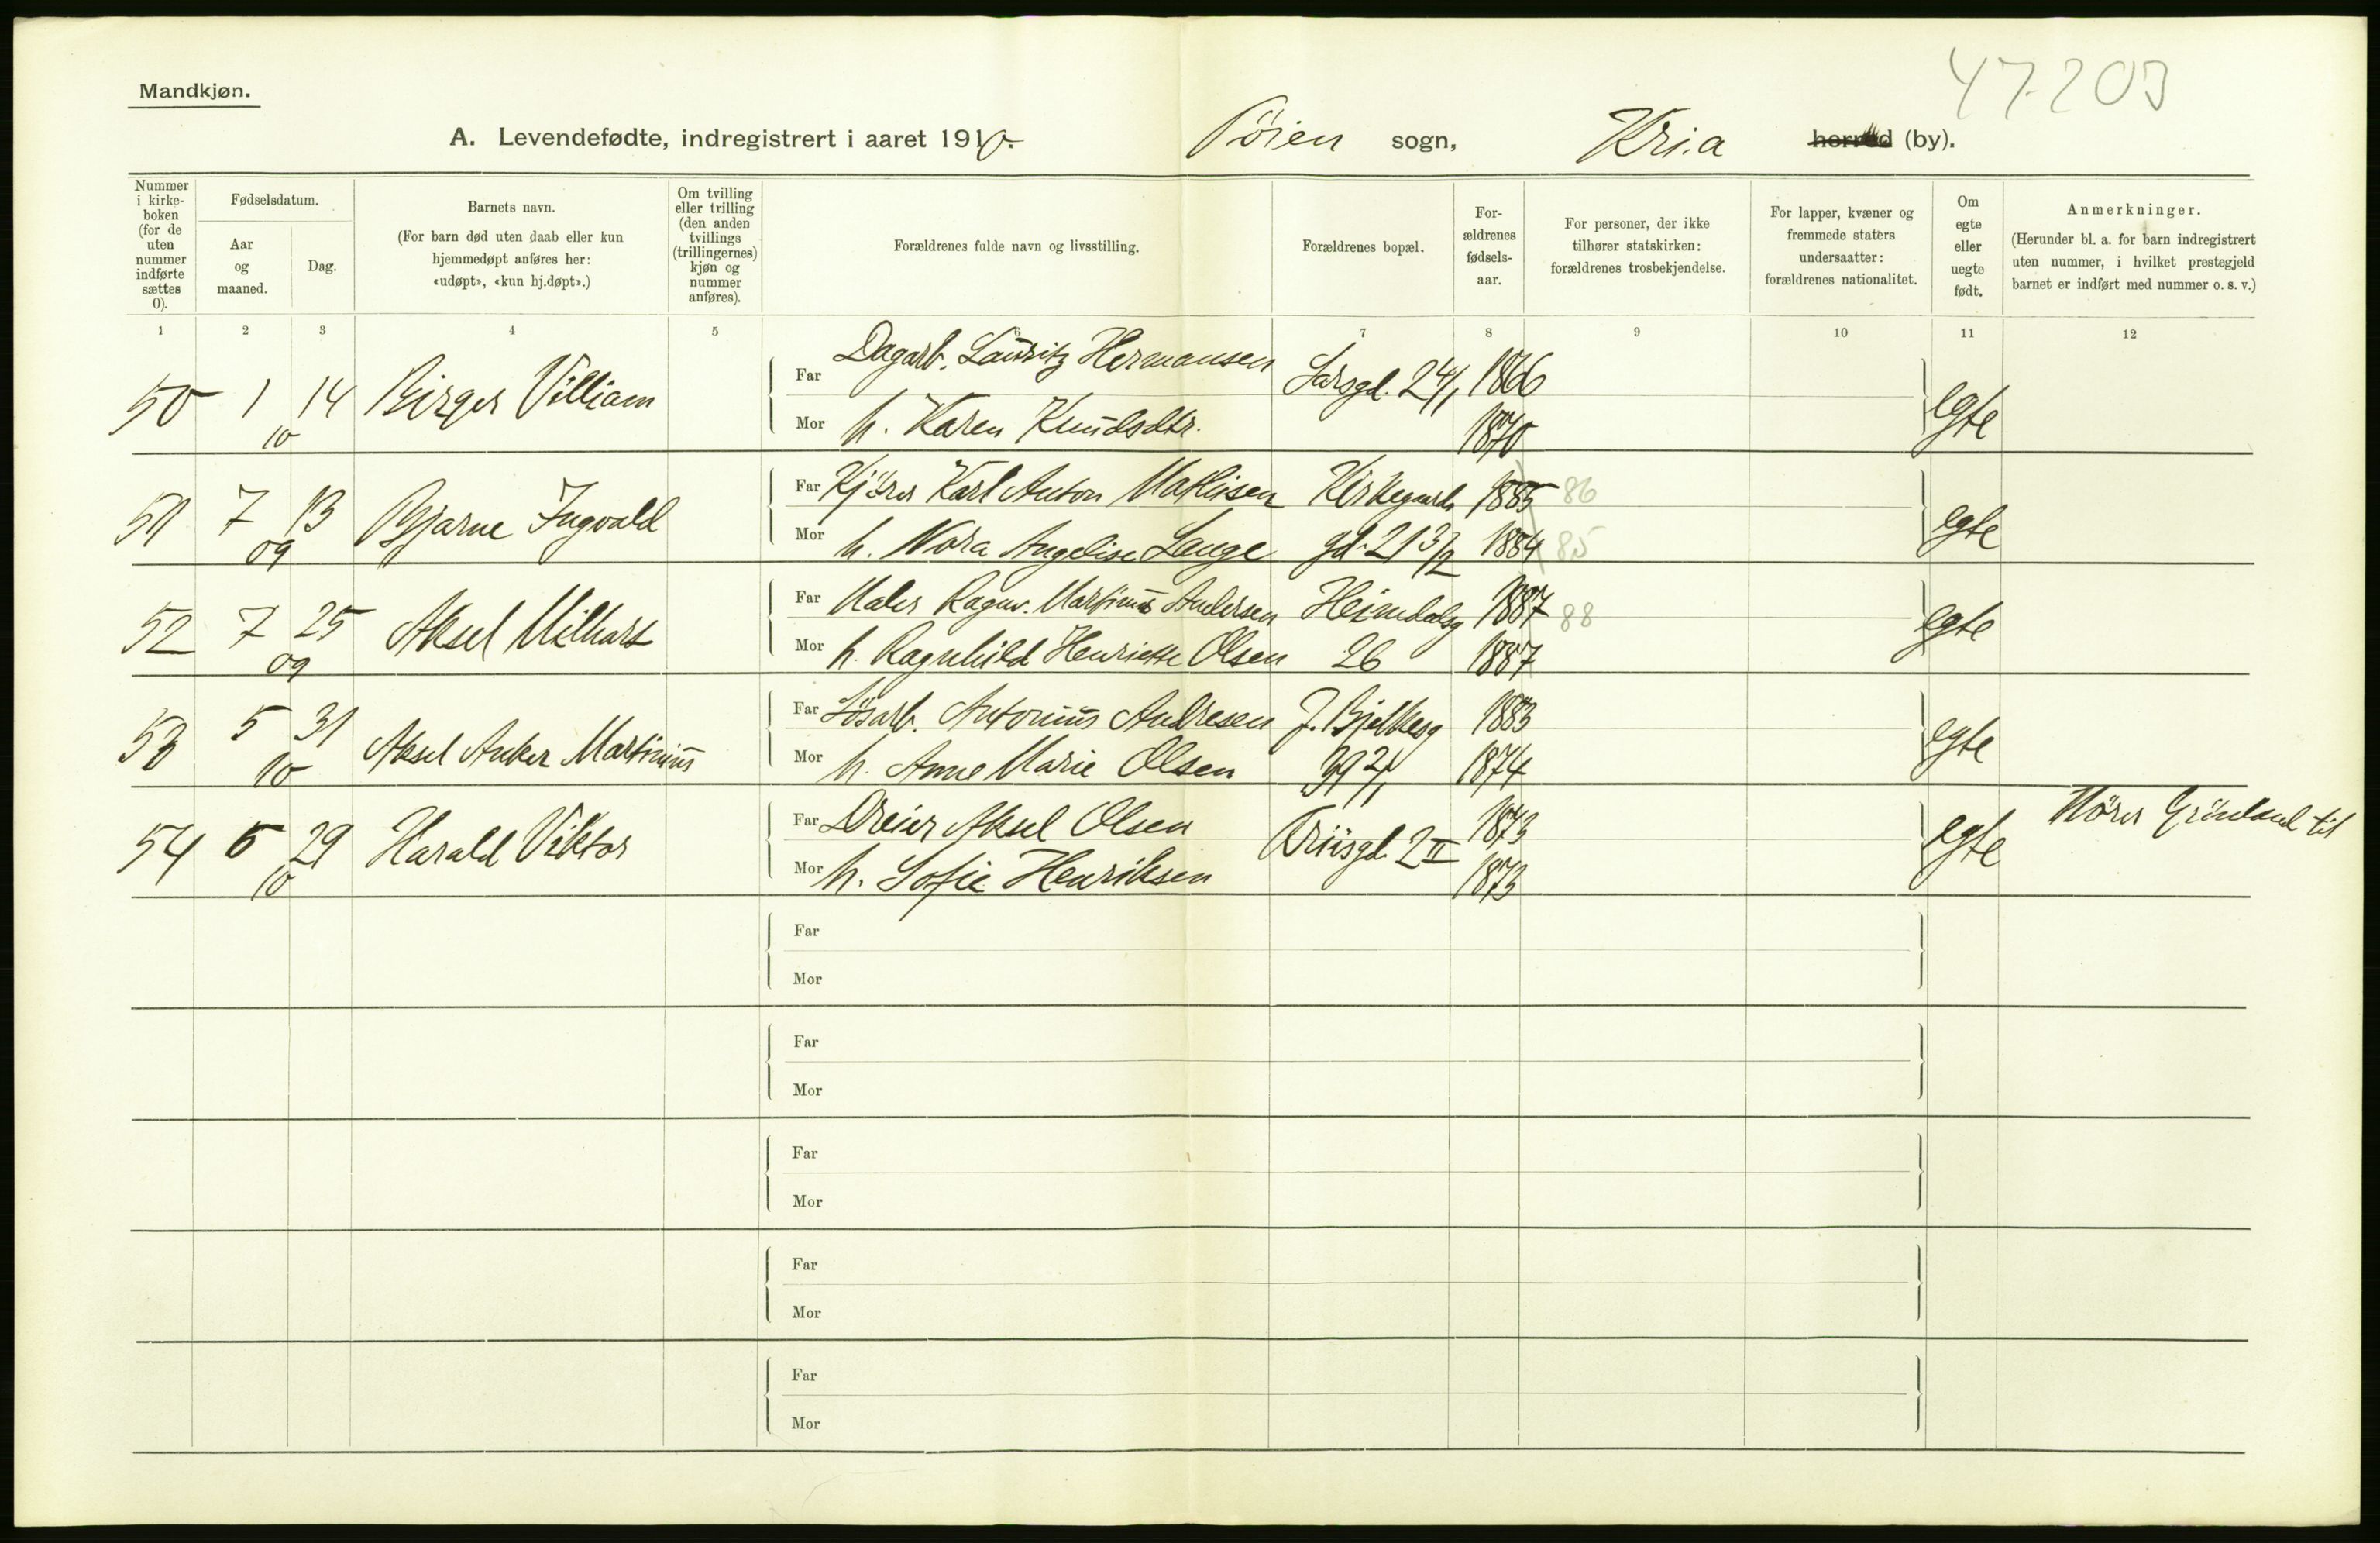 47-203
Mandkjøn.
A. Levendefødte, indregistrert i aaret 1910. Tøien sogn, Kria herred (by).
Nummer i kirke- boken (for de uten nummer indførte sættes 0).
Fødselsdatum.
Aar og maaned.
Dag.
Barnets navn.
(For barn død uten daab eller kun hjemmedøpt anføres her: «udøpt», «kun hj.døpt».)
Om tvilling eller trilling (den anden tvillings (trillingernes) kjøn og nummer anføres).
Forældrenes fulde navn og livsstilling.
Forældrenes bopæl.
For- ældrenes fødsels- aar.
For personer, der ikke tilhører statskirken: forældrenes trosbekjendelse.
For lapper, kvæner og fremmede staters undersaatter: forældrenes nationalitet.
Om egte eller uegte født.
Anmerkninger.
(Herunder bl. a. for barn indregistrert uten nummer, i hvilket prestegjeld barnet er indført med nummer o. s. v.)
1 2 3 4 5 6 7 8 9 10 11 12
50 1 14 Birger Villiam Far Dagarb. Lauritz Hermansen Sarsgd. 24/1 1866 egte
10 Mor h. Karen Knudsdtr. 1870
51 7 13 Bjarne Ingvald Far Kjörer Karl Anton Mathisen Kirkegaards 1885 86 egte
09 Mor h. Nora Angelise Lange gd. 213/2 1884 85
52 7 25 Aksel Milhart Far Maler Ragnv. Martinius Andersen Heimdalsg 1887 88 egte
09 Mor h. Ragnhild Henriette Olsen 26 1887
53 5 31 Aksel Anker Martinius Far Lösarb. Antonius Andresen J. Bjelkesg 1883 egte
10 Mor h. Anne Marie Olsen 1874
54 5 29 Harald Viktor Far Dreier Aksel Olsen Friisgd. 2 II 1873 egte Hörer Grönland til
10 Mor h. Sofie Henriksen 1873
Far
Mor
Far
Mor
Far
Mor
Far
Mor
Far
Mor